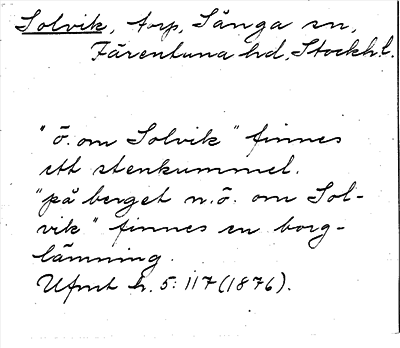 Solvik, torp, Sånga sn,
Färentuna hd, Stockh. l.
"ö. om Solvik" finnes
ett stenkummel.
"på berget n.ö. om Sol-
vik" finnes en borg-
lämning.
Ufmt h. 5: 117 (1876).